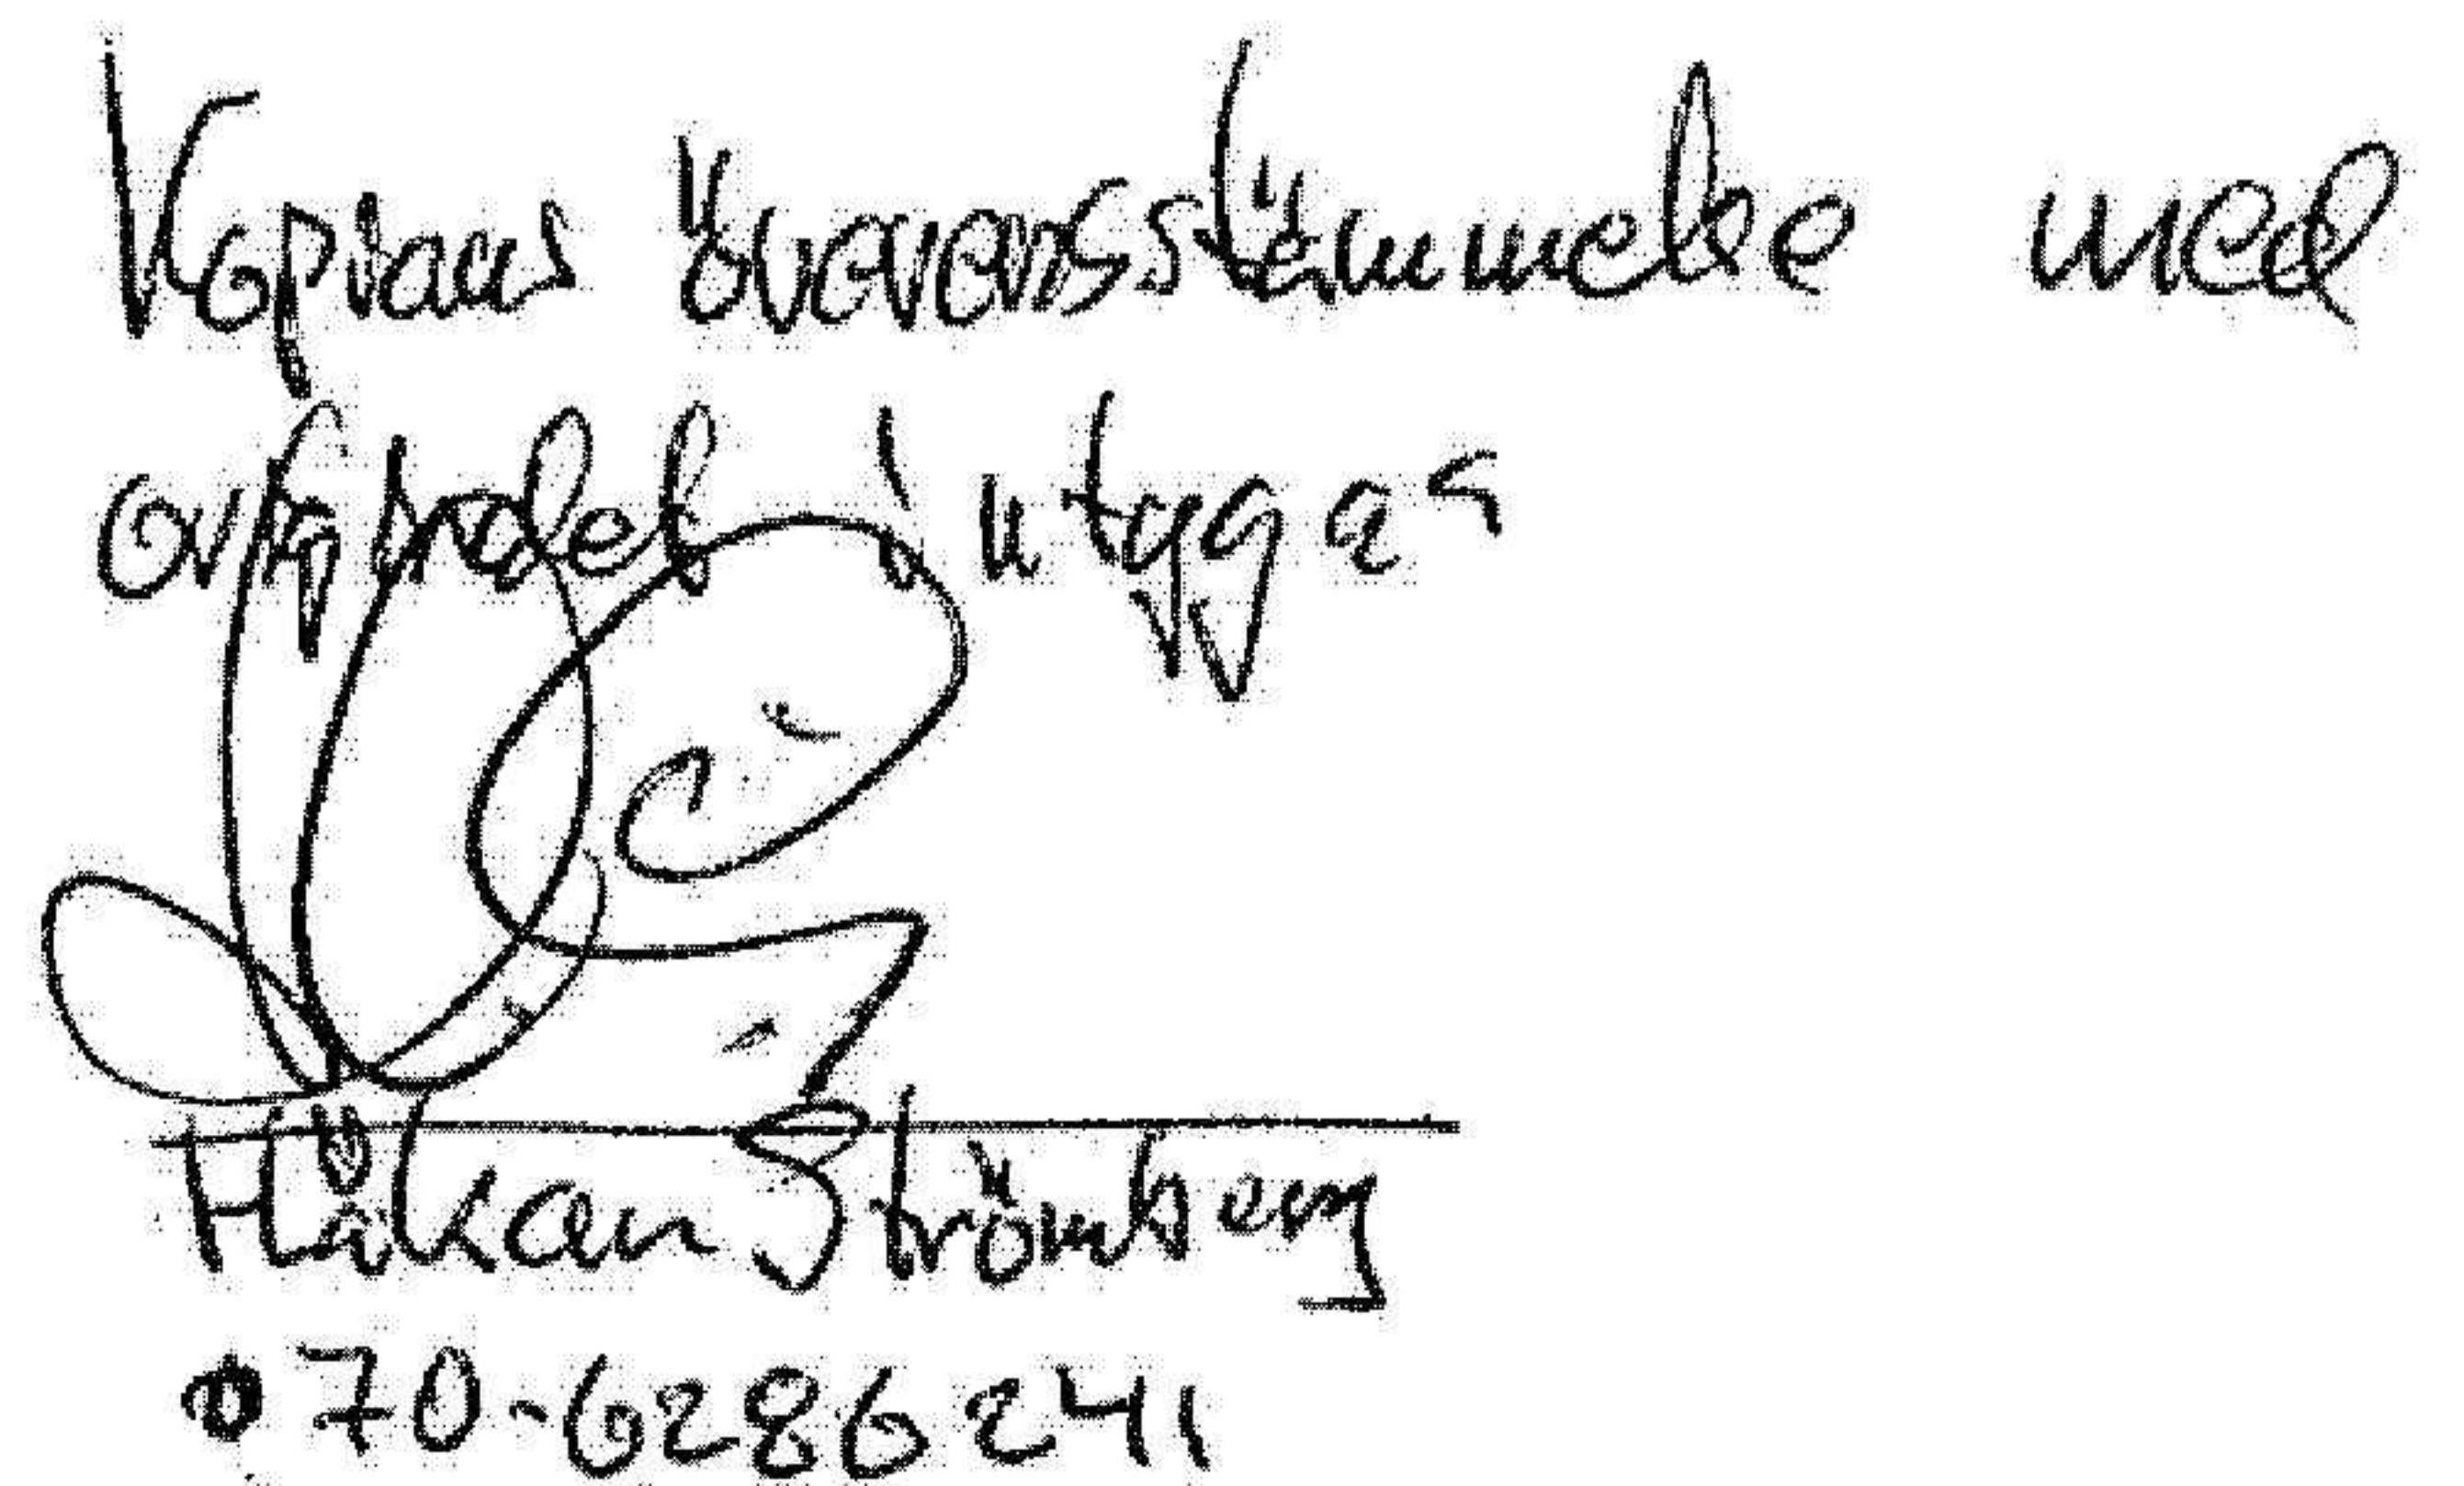 Kopians överensstämmelse med
originalet intygas
Håkan Strömberg
070-6286241